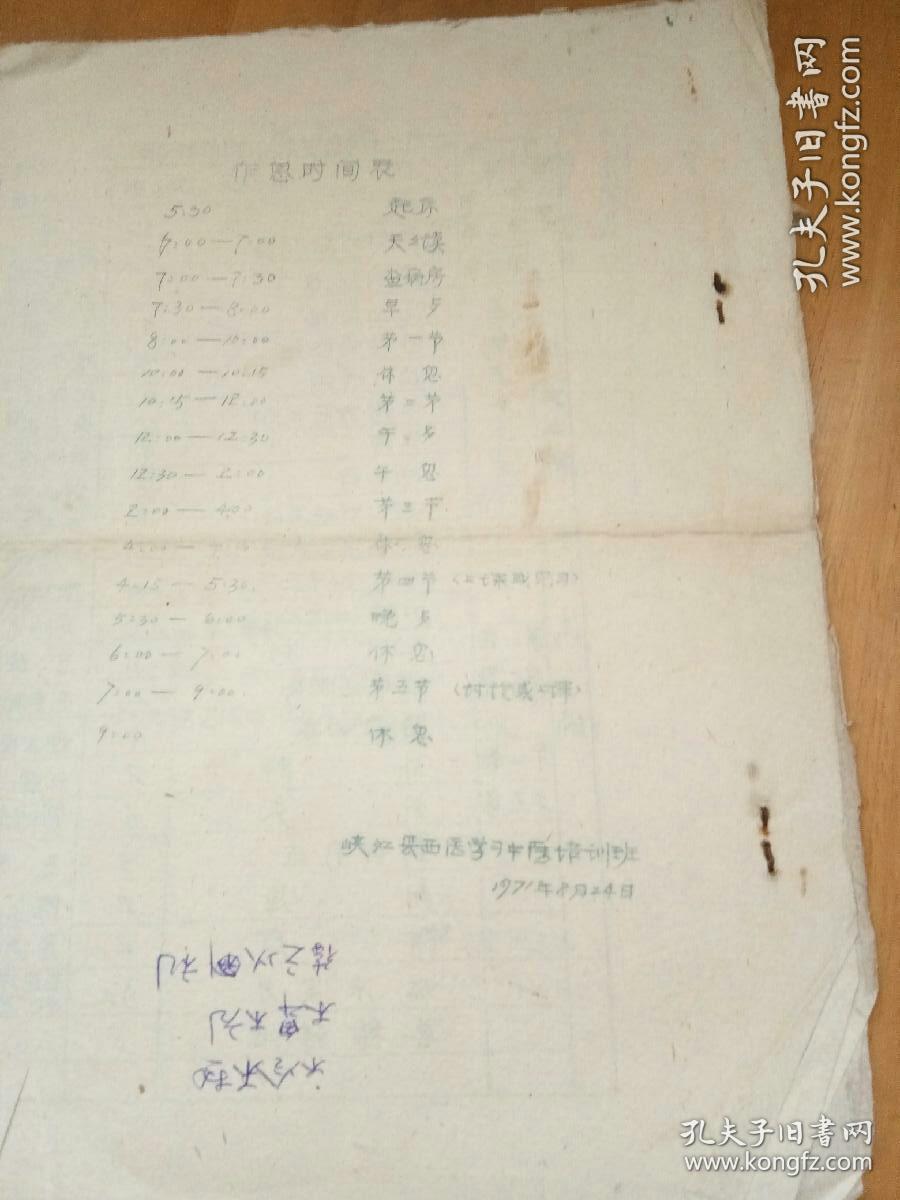 作息时间表
5:30 起床
6:00—7:00 天天读
7:00—7:30 查病房
7:30—8:00 早歺
8:00—10:00 第一节
10:00—10:15 休息
10:15—12:00 第二节
12:00—12:30 午歺
12:30—2:00 午息
2:00—4:00 第三节
4:00—4:15 休息
4:15—5:30 第四节(上课或见习)
5:30—6:00 晚歺
6:00—7:00 休息
7:00—9:00 第五节(讨论或上课)
9:00 休息
峡江县西医学习中医培训班
1971年8月24日
孔夫子旧书网
www.kongfz.com
孔夫子旧书网
www.kongfz.com